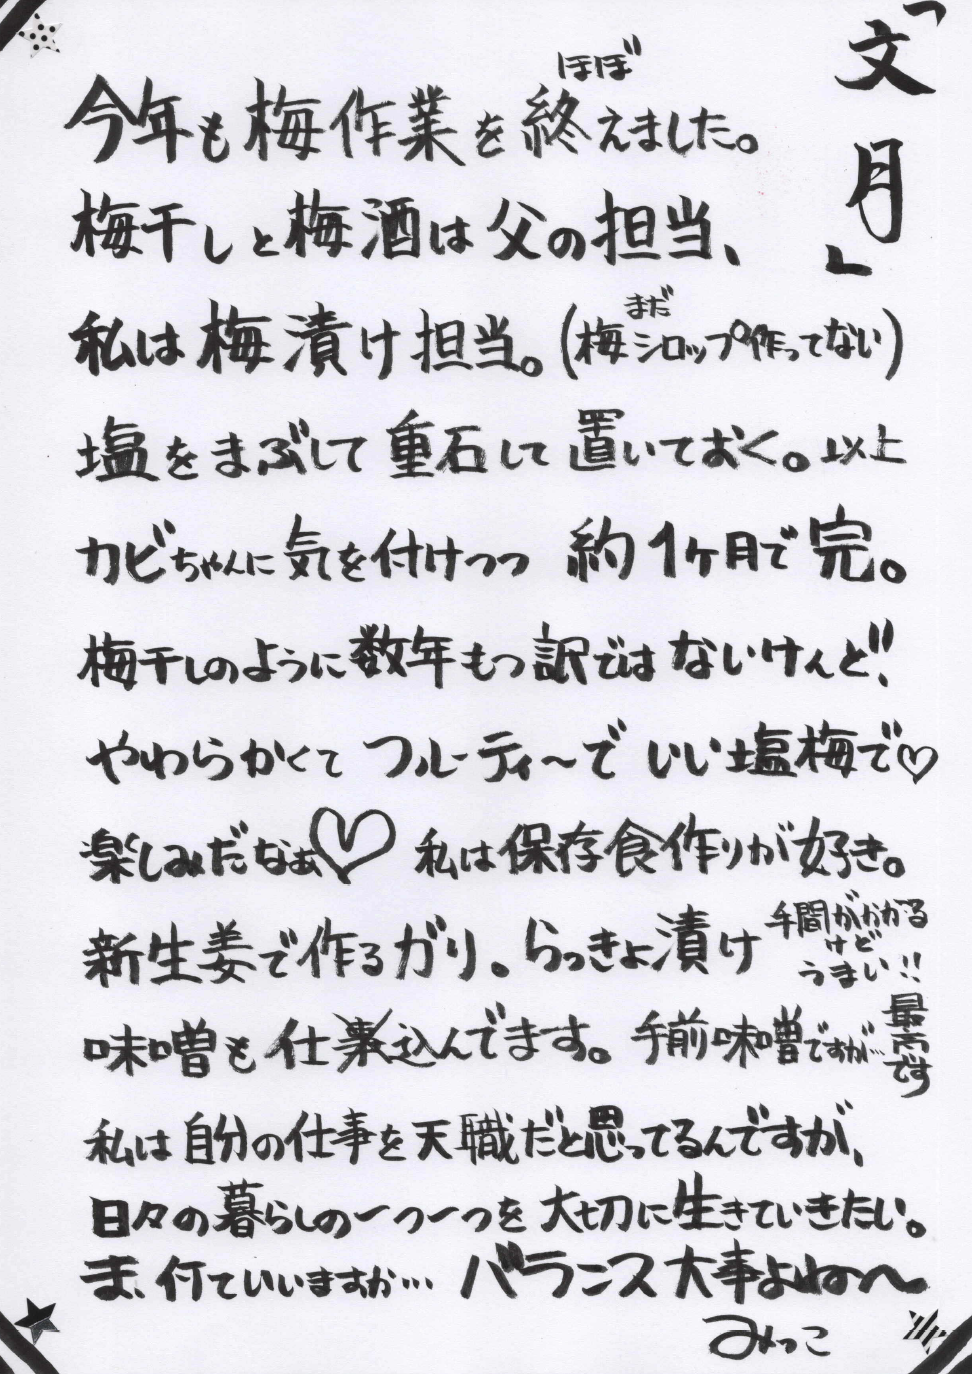 「文月」
ほぼ
今年も梅作業を終えました。
梅干しと梅酒は父の担当、
まだ
私は梅漬け担当。(梅シロップ作ってない)
塩をまぶして重石して置いておく。以上
カビちゃんに気を付けつつ 約1ヶ月で完。
梅干しのように数年もつ訳ではないけんど、
やわらかくて フルーティ〜で いい塩梅で♡
楽しみだなぁ♡ 私は保存食作りが好き。
新生姜で作るガリ。らっきょ漬け
手間がかかる
けど
うまい!!
味噌も仕込んでます。手前味噌ですが…
最高です
私は自分の仕事を天職だと思ってるんですが、
日々の暮らしの一つ一つを大切に生きていきたい。
ま、何ていいますか… バランス大事よね〜
みっこ